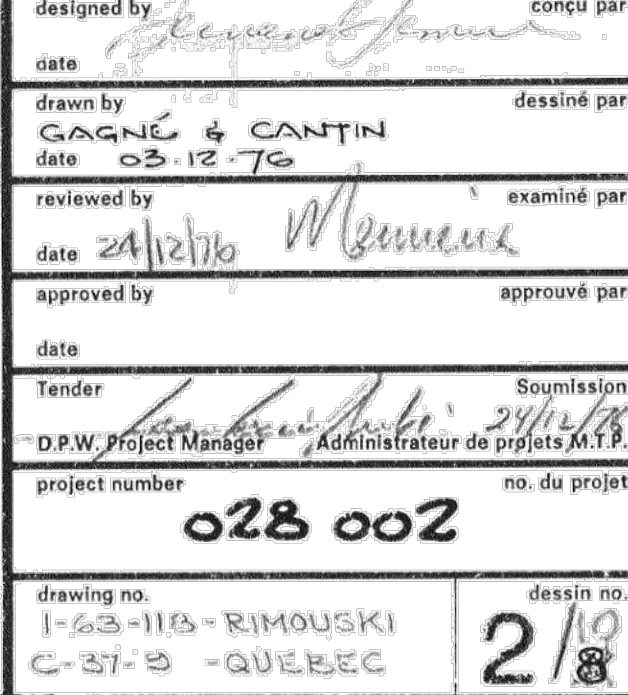 designed by conçu par
date
drawn by dessiné par
GAGNÉ & CANTIN
date 03-12-76
reviewed by examiné par
date 24/12/76
approved by approuvé par
date
Tender Soumission
24/12/76
D.P.W. Project Manager Administrateur de projets M.T.P.
project number no. du projet
028 002
drawing no. dessin no.
1-63-113-RIMOUSKI
C-37-9 -QUEBEC
2/10
8